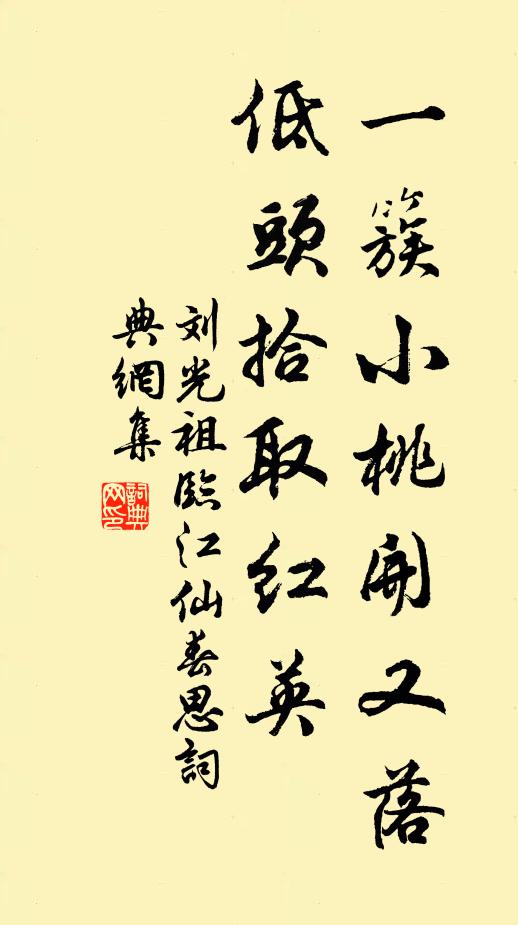 一簇小桃開又落
低頭拾取紅英
刘光祖臨江仙春思詞
典網集
詞典
网印